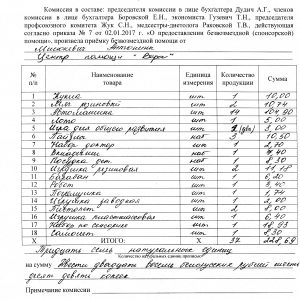 Комиссия в составе: председателя комиссии в лице бухгалтера Дудич А.Г., членов
комиссии в лице бухгалтера Боровской Е.Н., экономиста Гузевич Т.Н., председателя
профсоюзного комитета Жук С.Н., медсестры-диетолога Раковской Т.В., действующая
согласно приказа № 7 от 02.01.2017 г. «О предоставлении безвозмездной (спонсорской)
помощи», произвела приёмку безвозмездной помощи от
Центр помощи "Вера"
№ п/п Наименование товара Единица измерения Количество продукции Сумма
1 Кукла шт 1 10,00
2 Мяч резиновый шт 2 10,74
3 Автомашина шт 14 104,90
4 Лото шт 1 3,00
5 Игра для общего развития шт
6 шт 3 10,50
7 Набор доктор шт 1 2,70
8 шт 1 9,40
9 Посудка дет. наб 1 8,30
10 Игрушка резиновая шт 2 11,18
11 Барабан шт 1 6,20
12 Робот шт 1 8,40
13 Погремушка шт 1 1,74
14 Игрушка заводная шт 1 2,00
15 Пистолет шт 1 8,00
16 Игрушка пластмассовая шт 1 6,40
17 Набор по сенсорике шт 1 18,93
18 Самолёт шт 1 8,30
X ИТОГО: X 37 228,69
Тридцать семь натуральных единиц
Количество натуральных единиц прописью
на сумму Двести двадцать восемь белорусских рублей шесть
десят девять копеек
Примечание комиссии